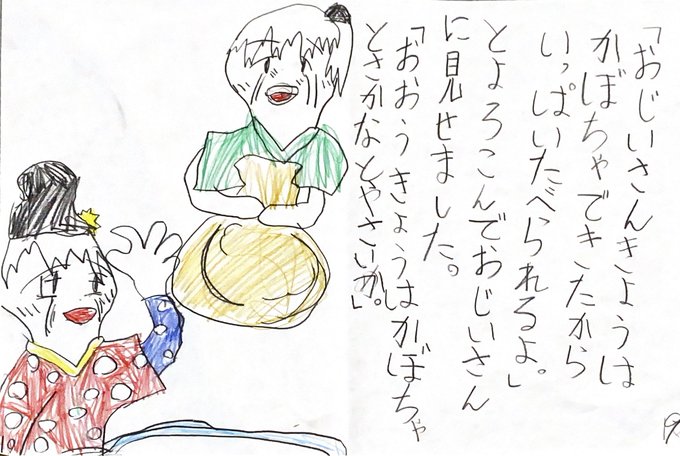 「おじいさんきょうは
かぼちゃできたから
いっぱいたべられるよ。」
とよろこんでおじいさん
に見せました。
「おおうきょうはかぼちゃ
とさかなとやさいか。」